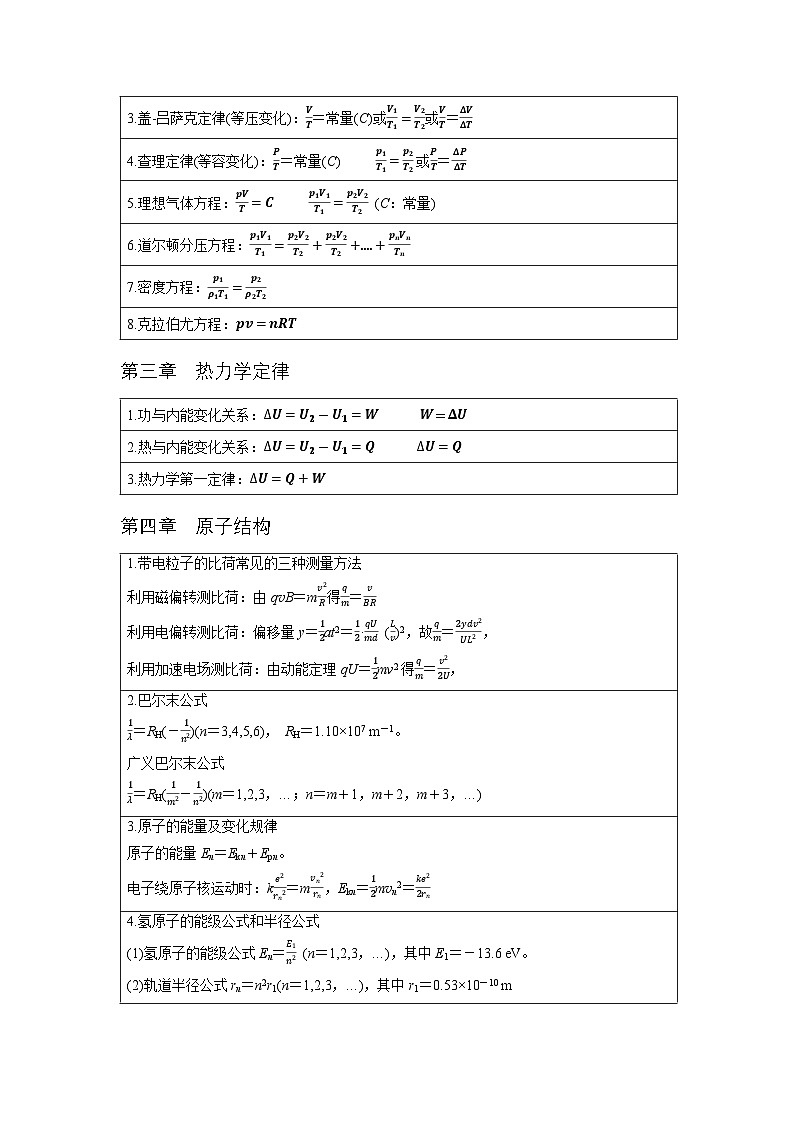 3.盖-吕萨克定律(等压变化)：V/T＝常量(C)或V₁/T₁＝V₂/T₂或V/T＝ΔV/ΔT
4.查理定律(等容变化)：P/T＝常量(C) p₁/T₁＝p₂/T₂或P/T＝ΔP/ΔT
5.理想气体方程：pV/T＝C p₁V₁/T₁＝p₂V₂/T₂ (C：常量)
6.道尔顿分压方程：p₁V₁/T₁＝p₂V₂/T₂＋p₂V₂/T₂＋....＋pₙVₙ/Tₙ
7.密度方程：p₁/ρ₁T₁＝p₂/ρ₂T₂
8.克拉伯尤方程：pv＝nRT
第三章 热力学定律
1.功与内能变化关系：ΔU＝U₂－U₁＝W W＝ΔU
2.热与内能变化关系：ΔU＝U₂－U₁＝Q ΔU＝Q
3.热力学第一定律：ΔU＝Q＋W
第四章 原子结构
1.带电粒子的比荷常见的三种测量方法
利用磁偏转测比荷：由 qvB＝mv²/R得q/m＝v/BR
利用电偏转测比荷：偏移量 y＝1/2at2＝1/2·qU/md (L/v)2，故q/m＝2ydv²/UL²，
利用加速电场测比荷：由动能定理 qU＝1/2mv²得q/m＝v²/2U，
2.巴尔末公式
1/λ＝R_H(－1/n²)(n＝3,4,5,6)， R_H＝1.10×10⁷ m⁻¹。
广义巴尔末公式
1/λ＝R_H(1/m²－1/n²)(m＝1,2,3，…；n＝m＋1，m＋2，m＋3，…)
3.原子的能量及变化规律
原子的能量 Eₙ＝Eₖₙ＋Eₚₙ。
电子绕原子核运动时：ke²/rₙ²＝mvₙ²/rₙ，Eₖₙ＝1/2mvₙ²＝ke²/2rₙ
4.氢原子的能级公式和半径公式
(1)氢原子的能级公式 Eₙ＝E₁/n² (n＝1,2,3，…)，其中 E₁＝－13.6 eV。
(2)轨道半径公式 rₙ＝n²r₁(n＝1,2,3，…)，其中 r₁＝0.53×10⁻¹⁰ m